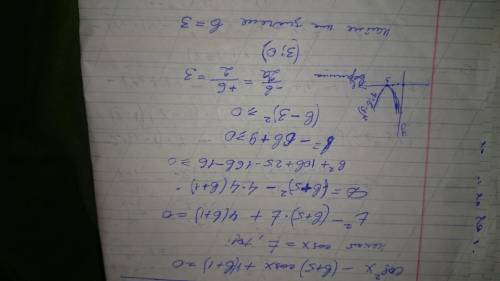 cos²x − (b+5) cosx + 4(b+1) = 0
нехай cosx = t, тоді
t² − (b+5)·t + 4(b+1) = 0
D = (b+5)² − 4·4(b+1) =
b² + 10b + 25 − 16b − 16 ≥ 0
b² − 6b + 9 ≥ 0
(b − 3)² ≥ 0
вершина −b/2a = +6/2 = 3
(3; 0)
значення b = 3